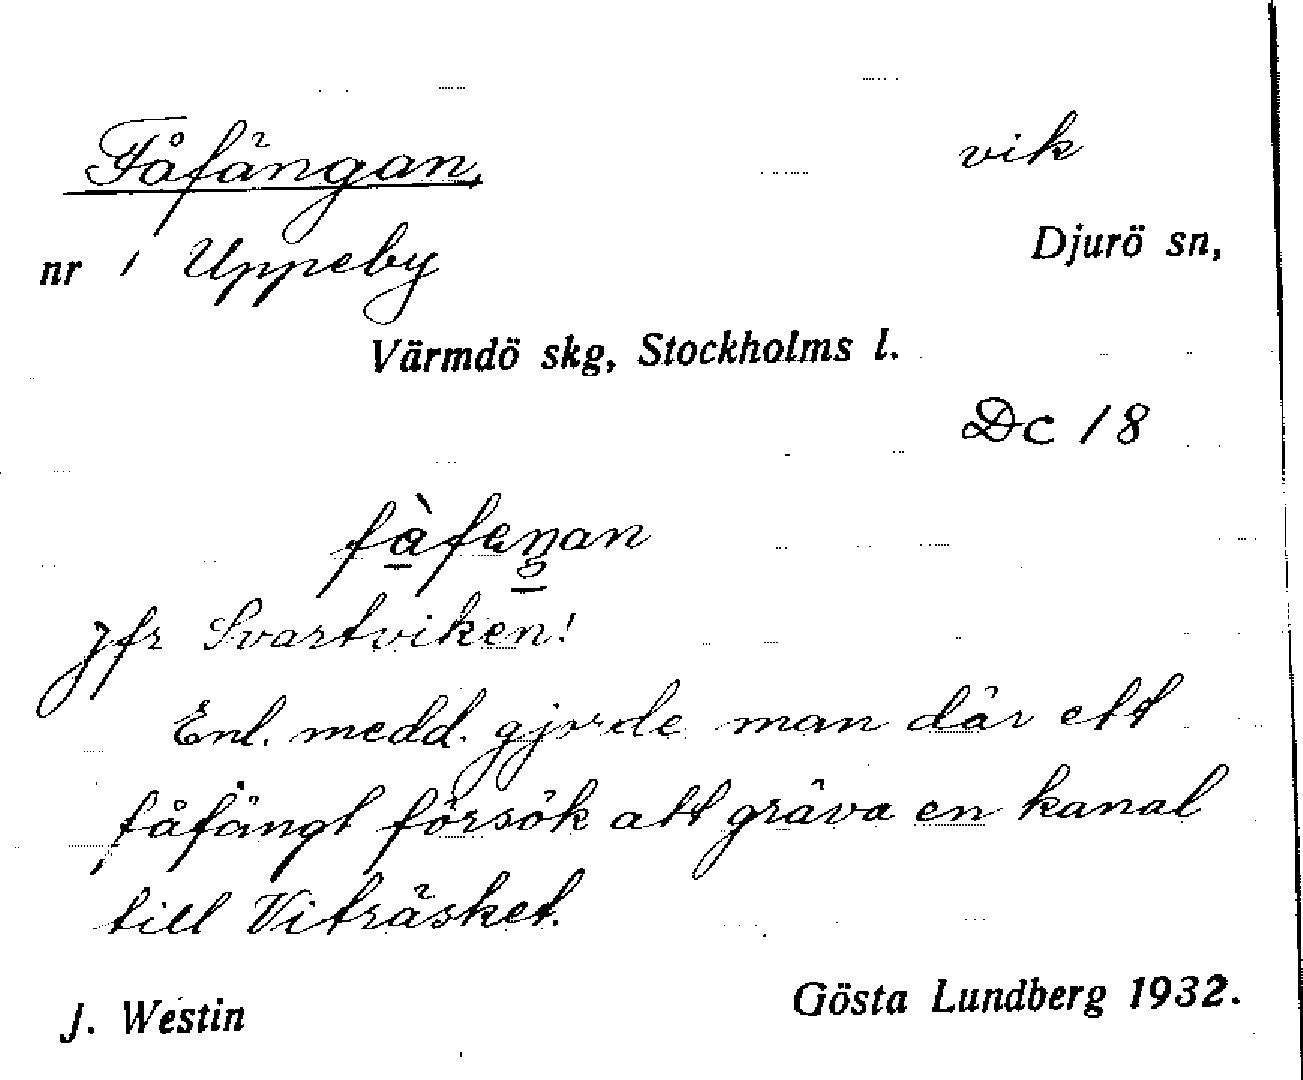 Fåfängan, vik
nr 1 Uppeby Djurö sn,
Värmdö skg, Stockholms l.
Dc 18
fàfęŋan
Jfr Svartviken!
Enl. medd. gjorde man där ett
fåfängt försök att gräva en kanal
till Viträsket.
J. Westin Gösta Lundberg 1932.